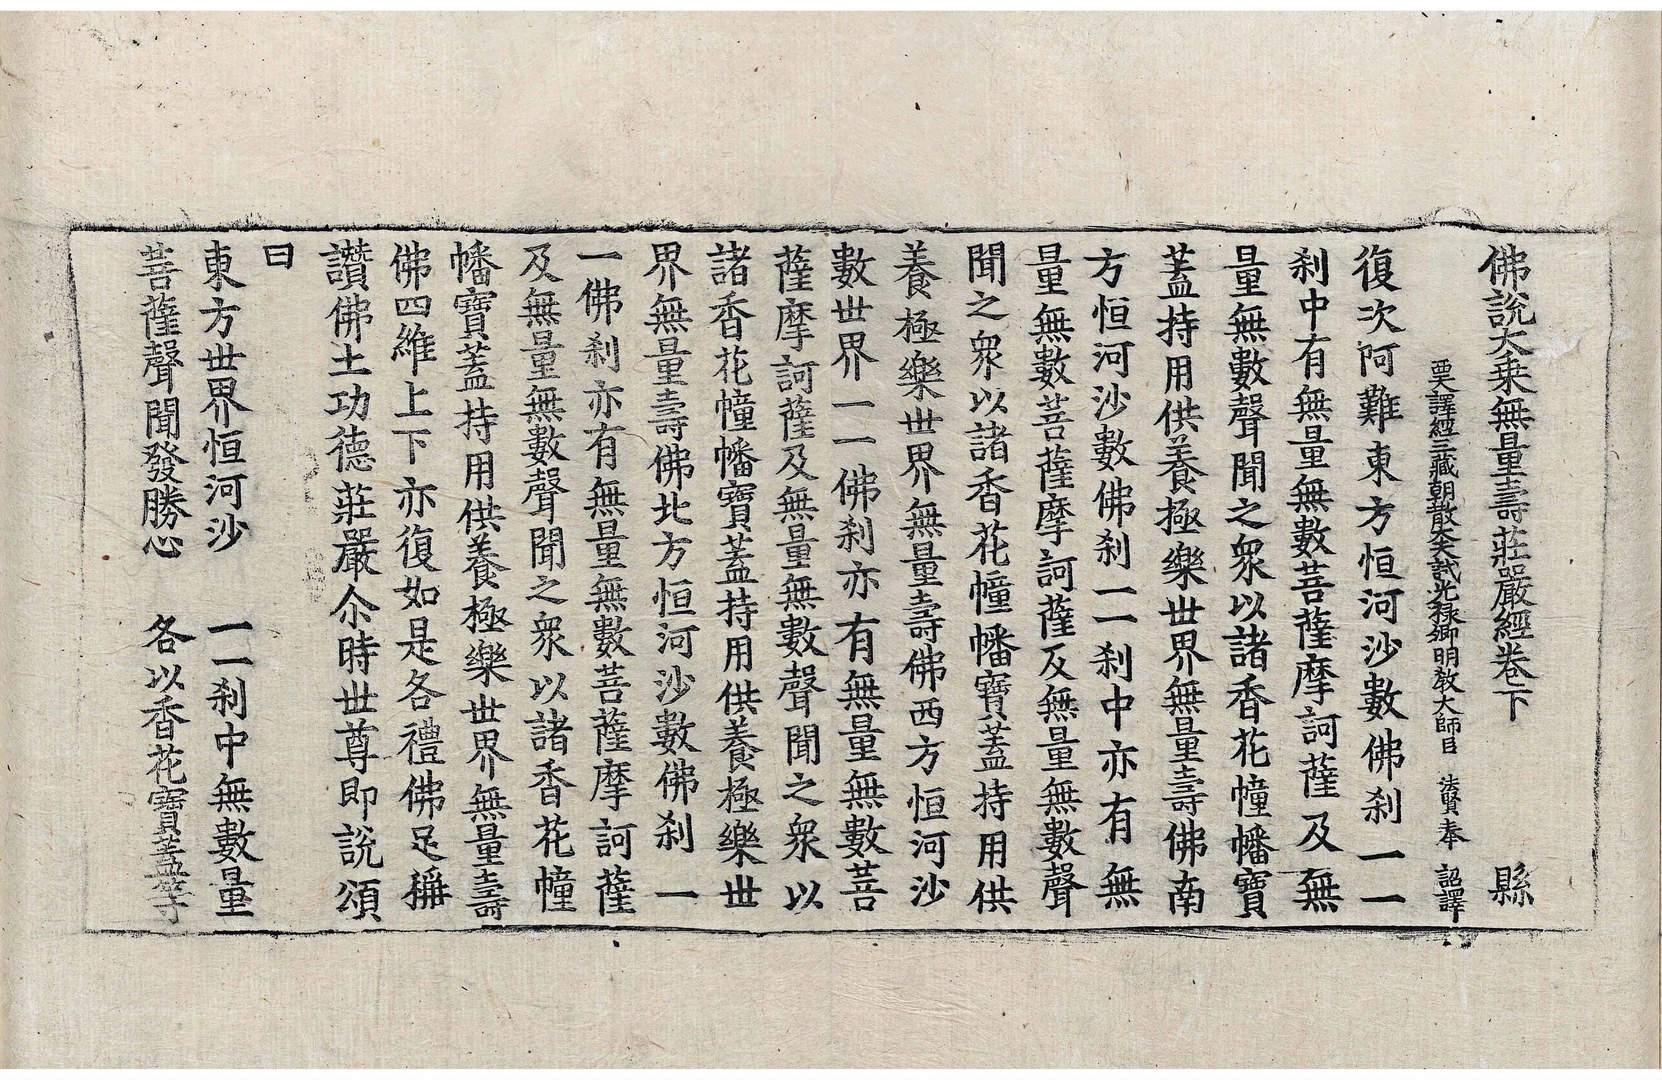 佛說大乘無量壽莊嚴經卷下　縣
西天譯經三藏朝散大夫試光祿卿明教大師臣　法賢奉　詔譯
復次阿難東方恒河沙數佛剎一一
剎中有無量無數菩薩摩訶薩及無
量無數聲聞之眾以諸香花幢幡寶
蓋持用供養極樂世界無量壽佛南
方恒河沙數佛剎一一剎中亦有無
量無數菩薩摩訶薩及無量無數聲
聞之眾以諸香花幢幡寶蓋持用供
養極樂世界無量壽佛西方恒河沙
數世界一一佛剎亦有無量無數菩
薩摩訶薩及無量無數聲聞之眾以
諸香花幢幡寶蓋持用供養極樂世
界無量壽佛北方恒河沙數佛剎一
一佛剎亦有無量無數菩薩摩訶薩
及無量無數聲聞之眾以諸香花幢
幡寶蓋持用供養極樂世界無量壽
佛四維上下亦復如是各禮佛足稱
讚佛土功德莊嚴尒時世尊即說頌
曰
東方世界恒河沙　一一剎中無數量
菩薩聲聞發勝心　各以香花寶蓋等